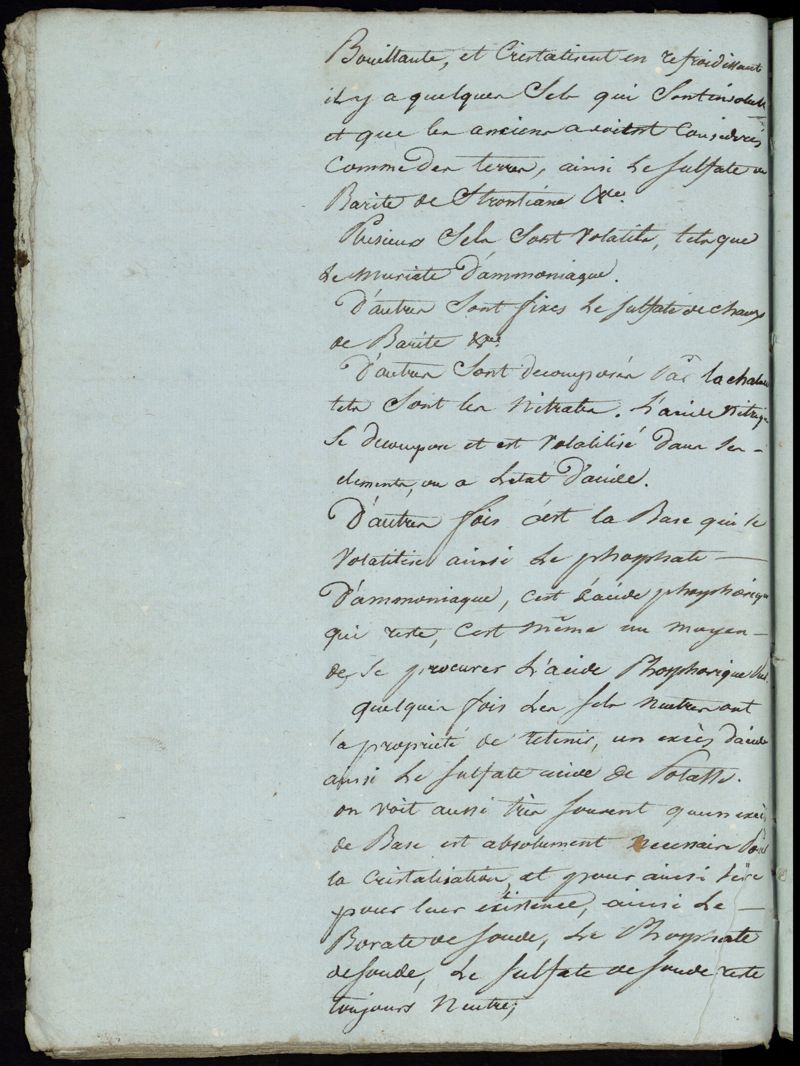 Bouillante, et Cristalisent en refroidissant
il y a quelques Sels qui Sont insolubles
et que les anciens avoient Considerés
Comme Des terres, ainsi Le sulfate de
Barite de Strontiane &ce.
Plusieurs Sels Sont Volatils, tels que
Le muriate D'ammoniaque.
D'autres Sont fixes Le sulfate de chaux
de Barite &ce.
D'autres Sont decomposés Par la chaleur
tels Sont les nitrates. L'acide nitrique
Se decompose et est Volatilisé Dans Ses
elements, ou a Letat D'acide.
D'autres fois c'est la Base qui se
Volatilise ainsi Le phosphate
D'ammoniaque, c'est L'acide phosphorique
qui reste, C'est même un moyen
de Se procurer L'acide Phosphorique
quelques fois Les Sels neutres ont
la propriété de retenir, un excès d'acide
ainsi Le Sulfate acide de Potasse.
on voit aussi très souvent qu'un excès
de Base est absolument necessaire Pour
la Cristalisation, et pour ainsi dire
pour leur existence, ainsi Le
Borate de Soude, Le Phosphate
de Soude, Le Sulfate de Soude reste
toujours Neutre;